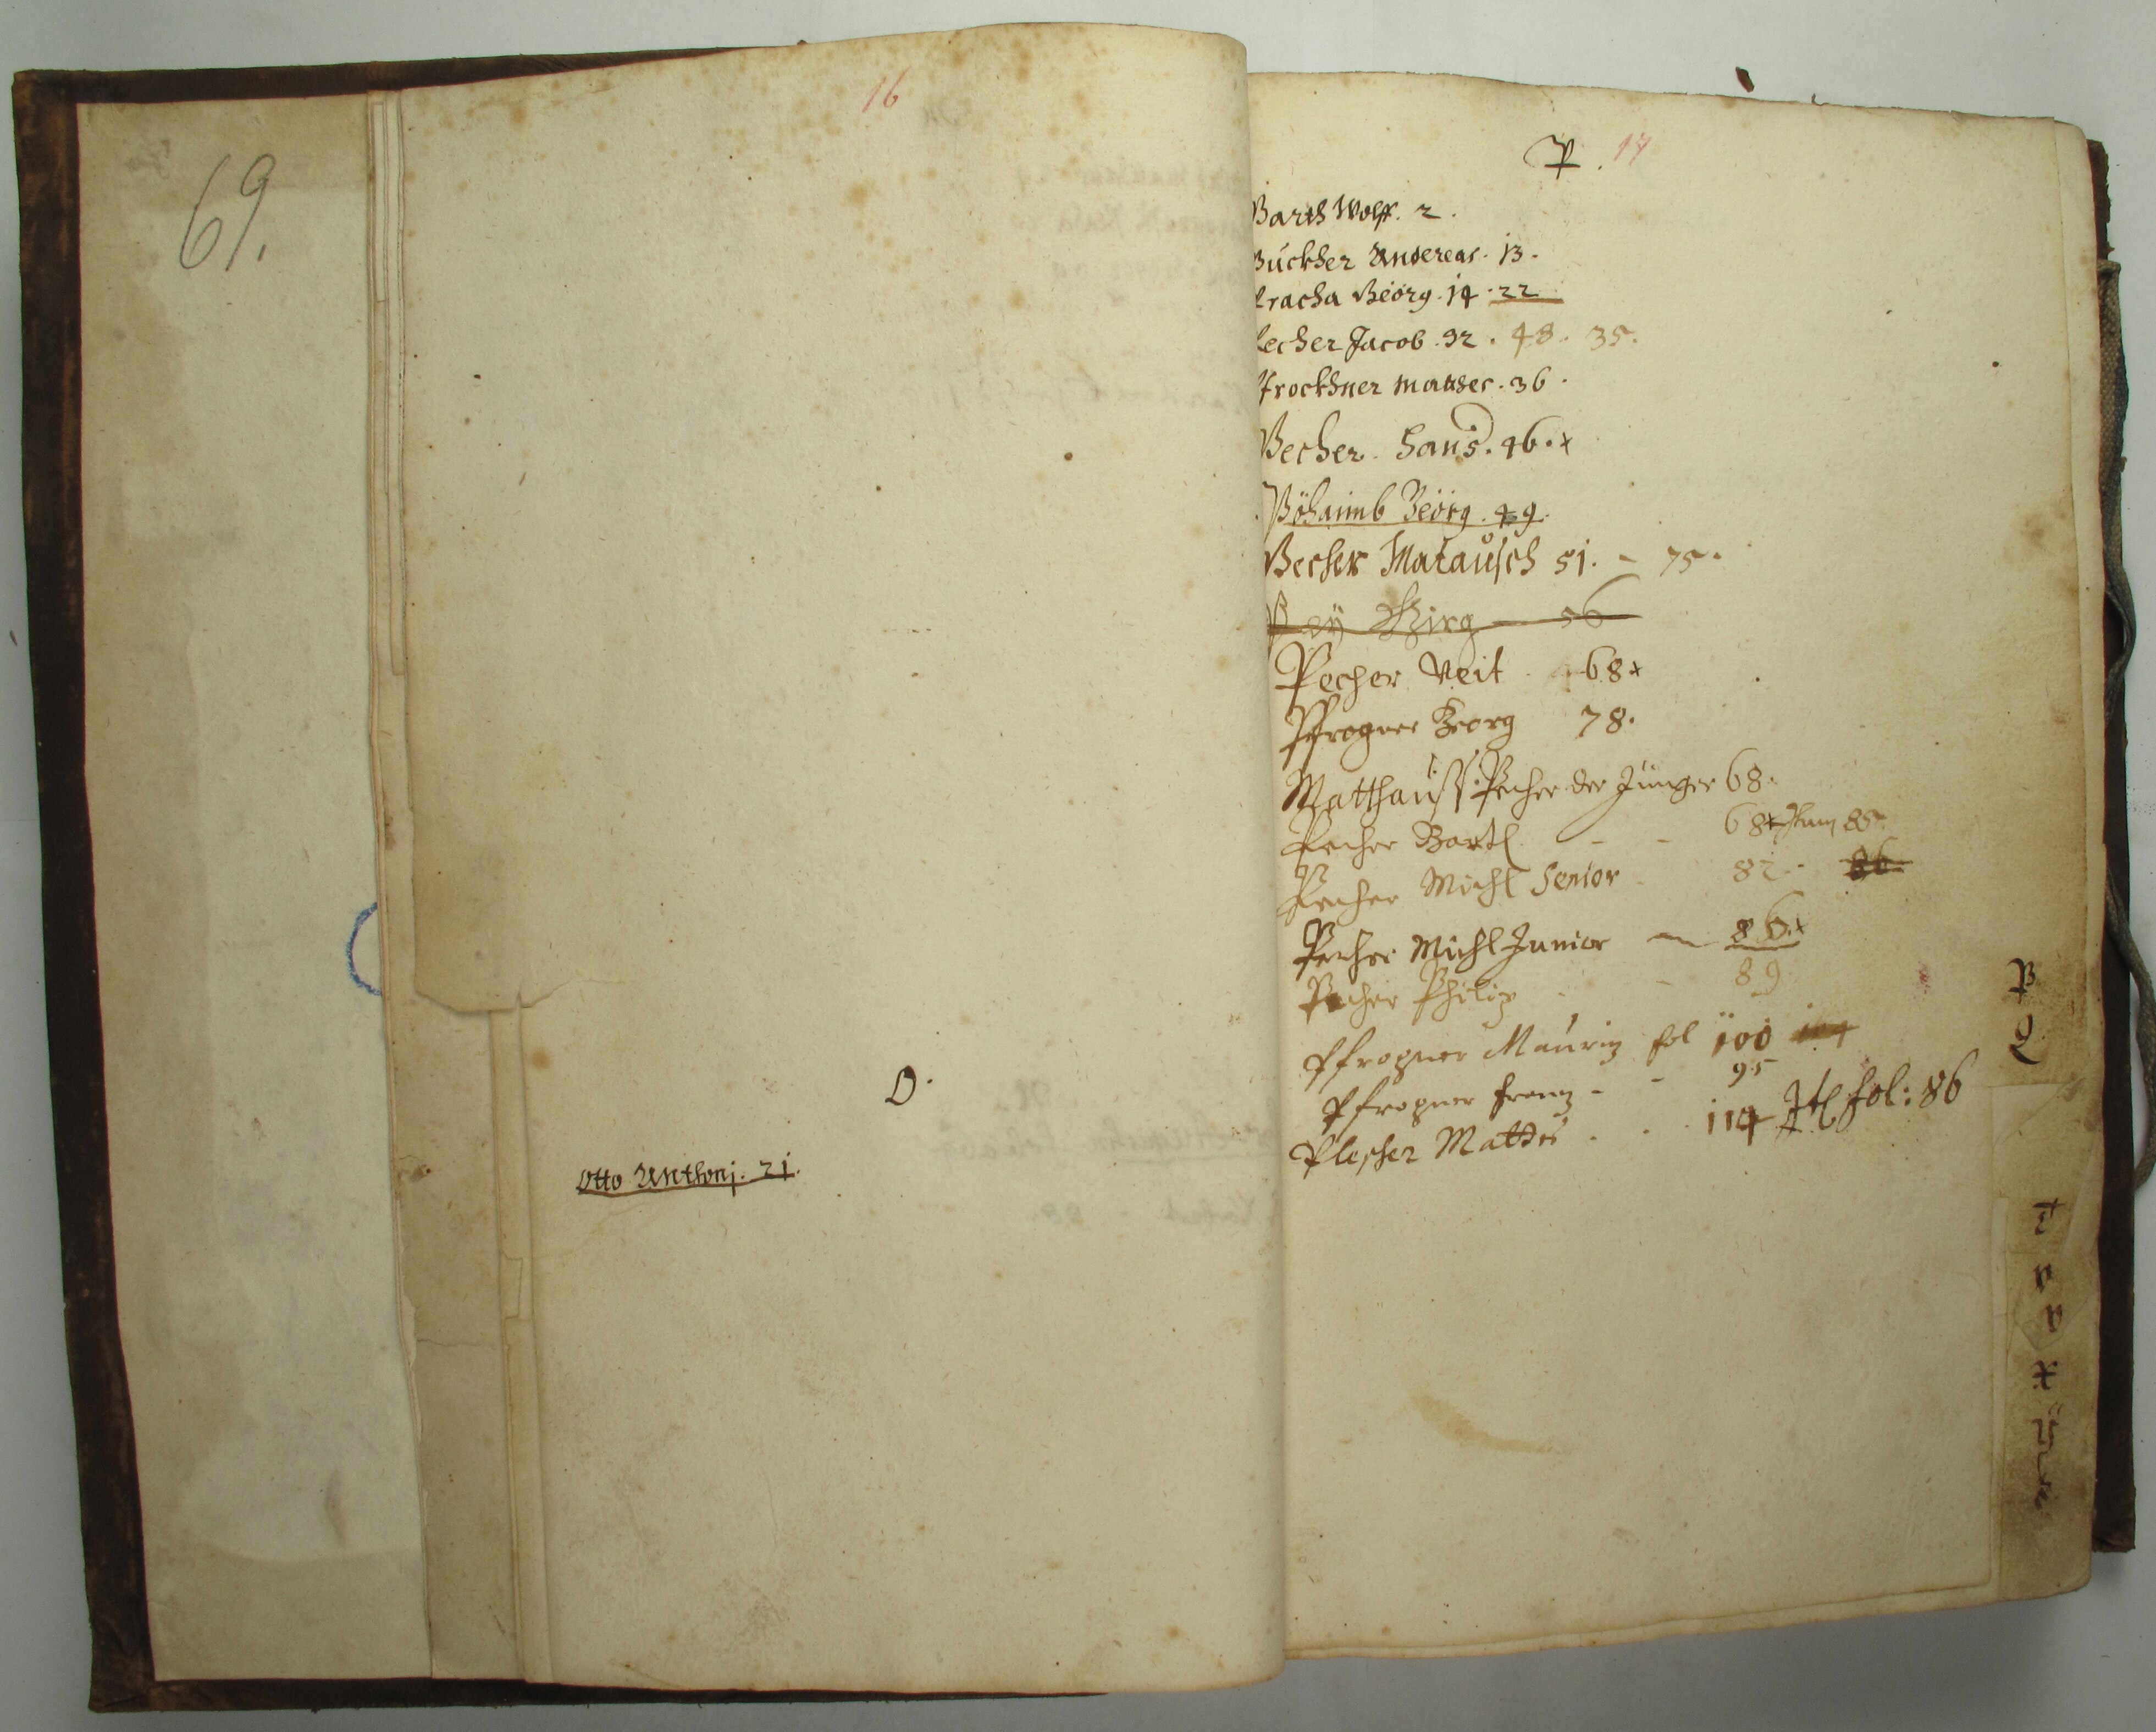 69.
16
O.
Otto Anthonj. 21.
P. 17
Barth Wolff. 2.
Pracha Geörg. 14. 22
Pecher Jacob. 32. 48. 35.
Pfrockhner Mathes. 36.
Becher Hanß. 46. x
Böhaimb Geörg. 49.
Becher Matausch 51. - 75.
56
Pecher Veit 68 x
Pfrogner Georg 78.
Matthauß: Pecher der Jünger 68.
Pecher Bartl - - 68 85.
Pecher Michl Senior 82. 86
Pecher Michl Junior 86. x
Pecher Philip - 89
Pfrogner Mauriz fol 100
Pfrogner Franz - - 95
Plescher Mathes . . 114 fol: 86
P
Q
T
V